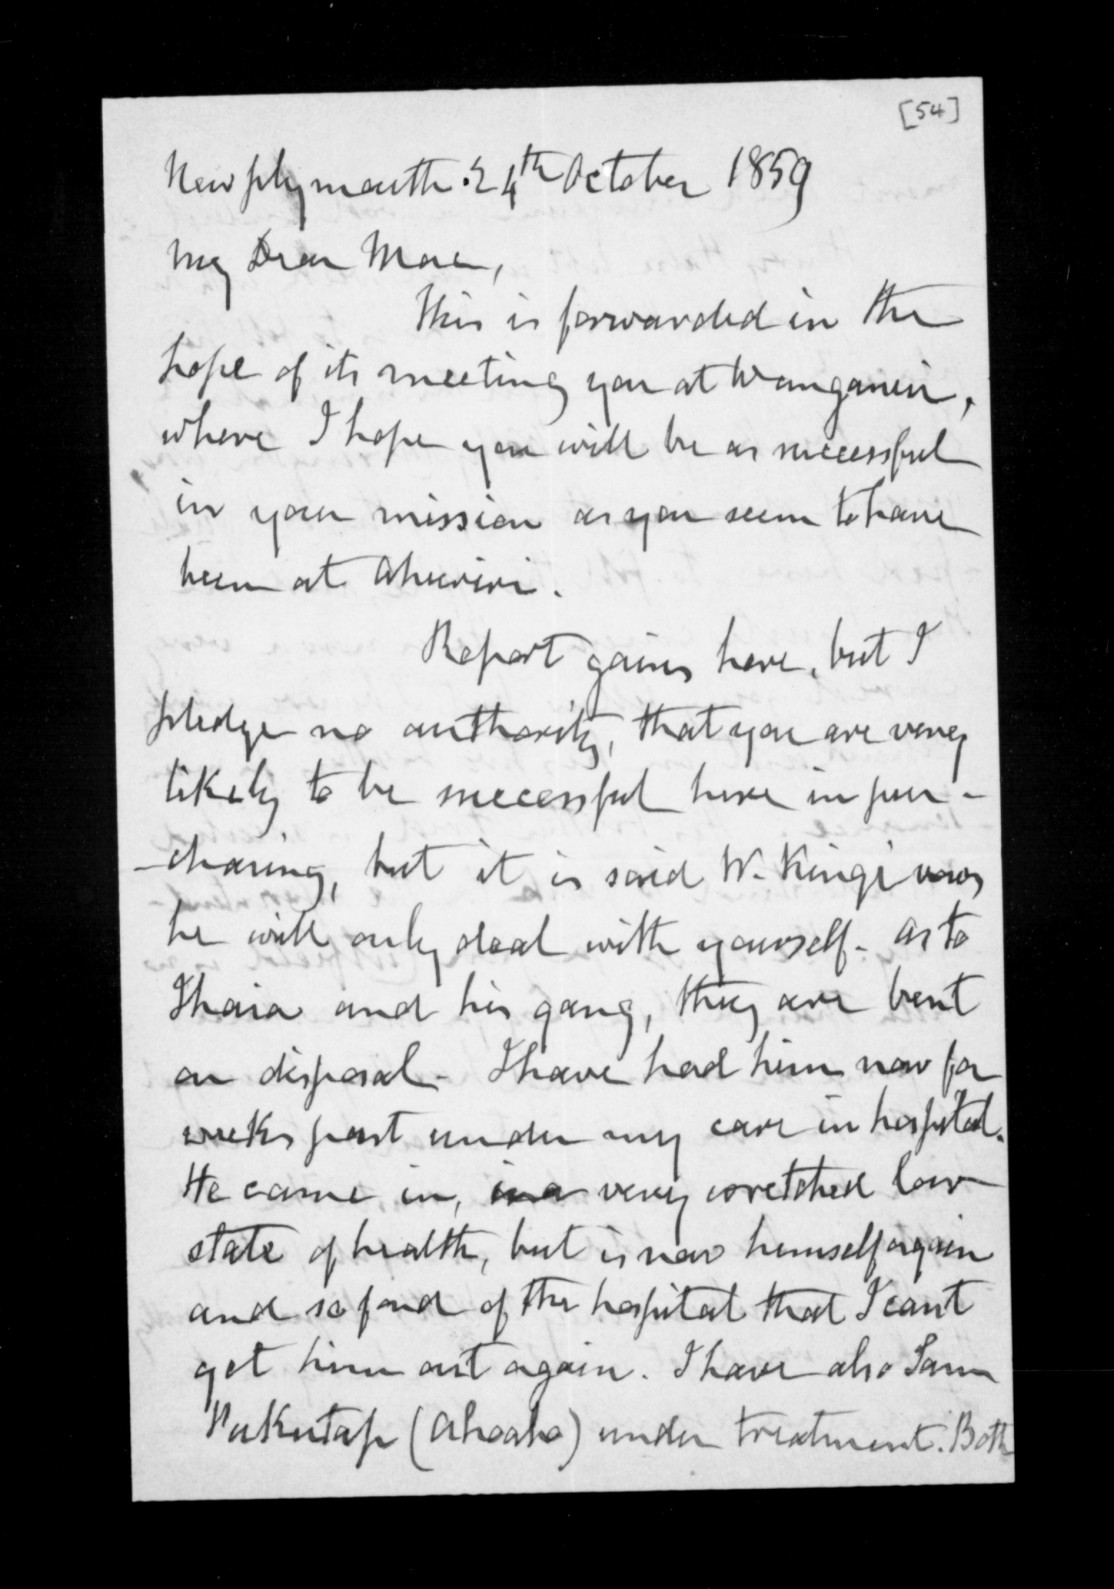 [54]
New Plymouth. 24th October 1859
My Dear Mac,
This is forwarded in the
hope of its meeting you at Wanganui,
where I hope you will be as successful
in your mission as you seem to have
been at Ahuriri.
Report gains here, but I
pledge no authority, that you are very
likely to be successful here in pur-
-chasing, but it is said W. Kingi vows
he will only deal with yourself. As to
Ihaia and his gang, they are bent
on disposal. I have had him now for
weeks past under my care in hospital.
He came in, in a very wretched low
state of health, but is now himself again
and so fond of the hospital that I cant
get him out again. I have also Sam
Pukutap (Ahoaho) under treatment. Both